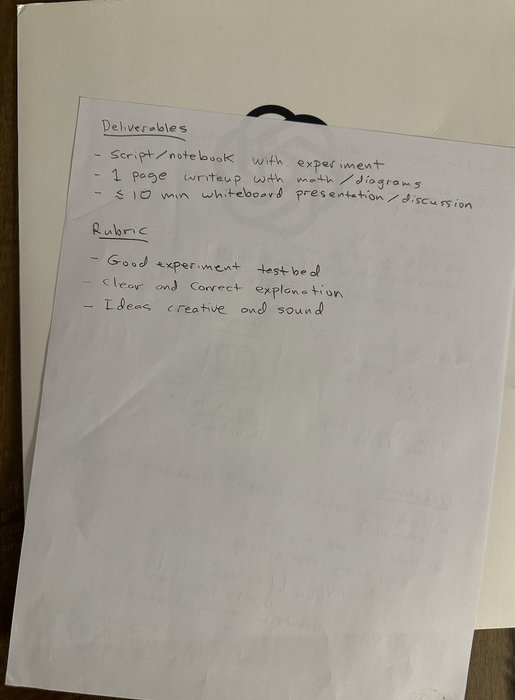 Deliverables
- Script/notebook with experiment
- 1 page writeup with math/diagrams
- ≤ 10 min whiteboard presentation/discussion
Rubric
- Good experiment testbed
- Clear and correct explanation
- Ideas creative and sound